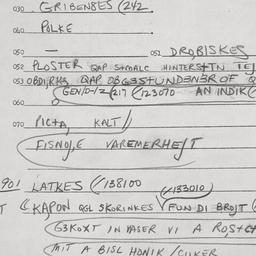 030 GRIBENSES (242
040 PULKE
050 —
051 DROBISKES
052 PLOSTER QAP SMALC HINTERSTN TEJ
053 QAP OF
060 GEN10-12 (217 (123070 AN INDIK
070 PICTA, KALT
FISNOJE VAREMERHEJT
901 LATKES (138100
(183010)
KAPON QGL SKORINKES FUN DI BROJT
G3KOXT IN VASER VI A ROST
MIT A BISL HONIK / CUKER